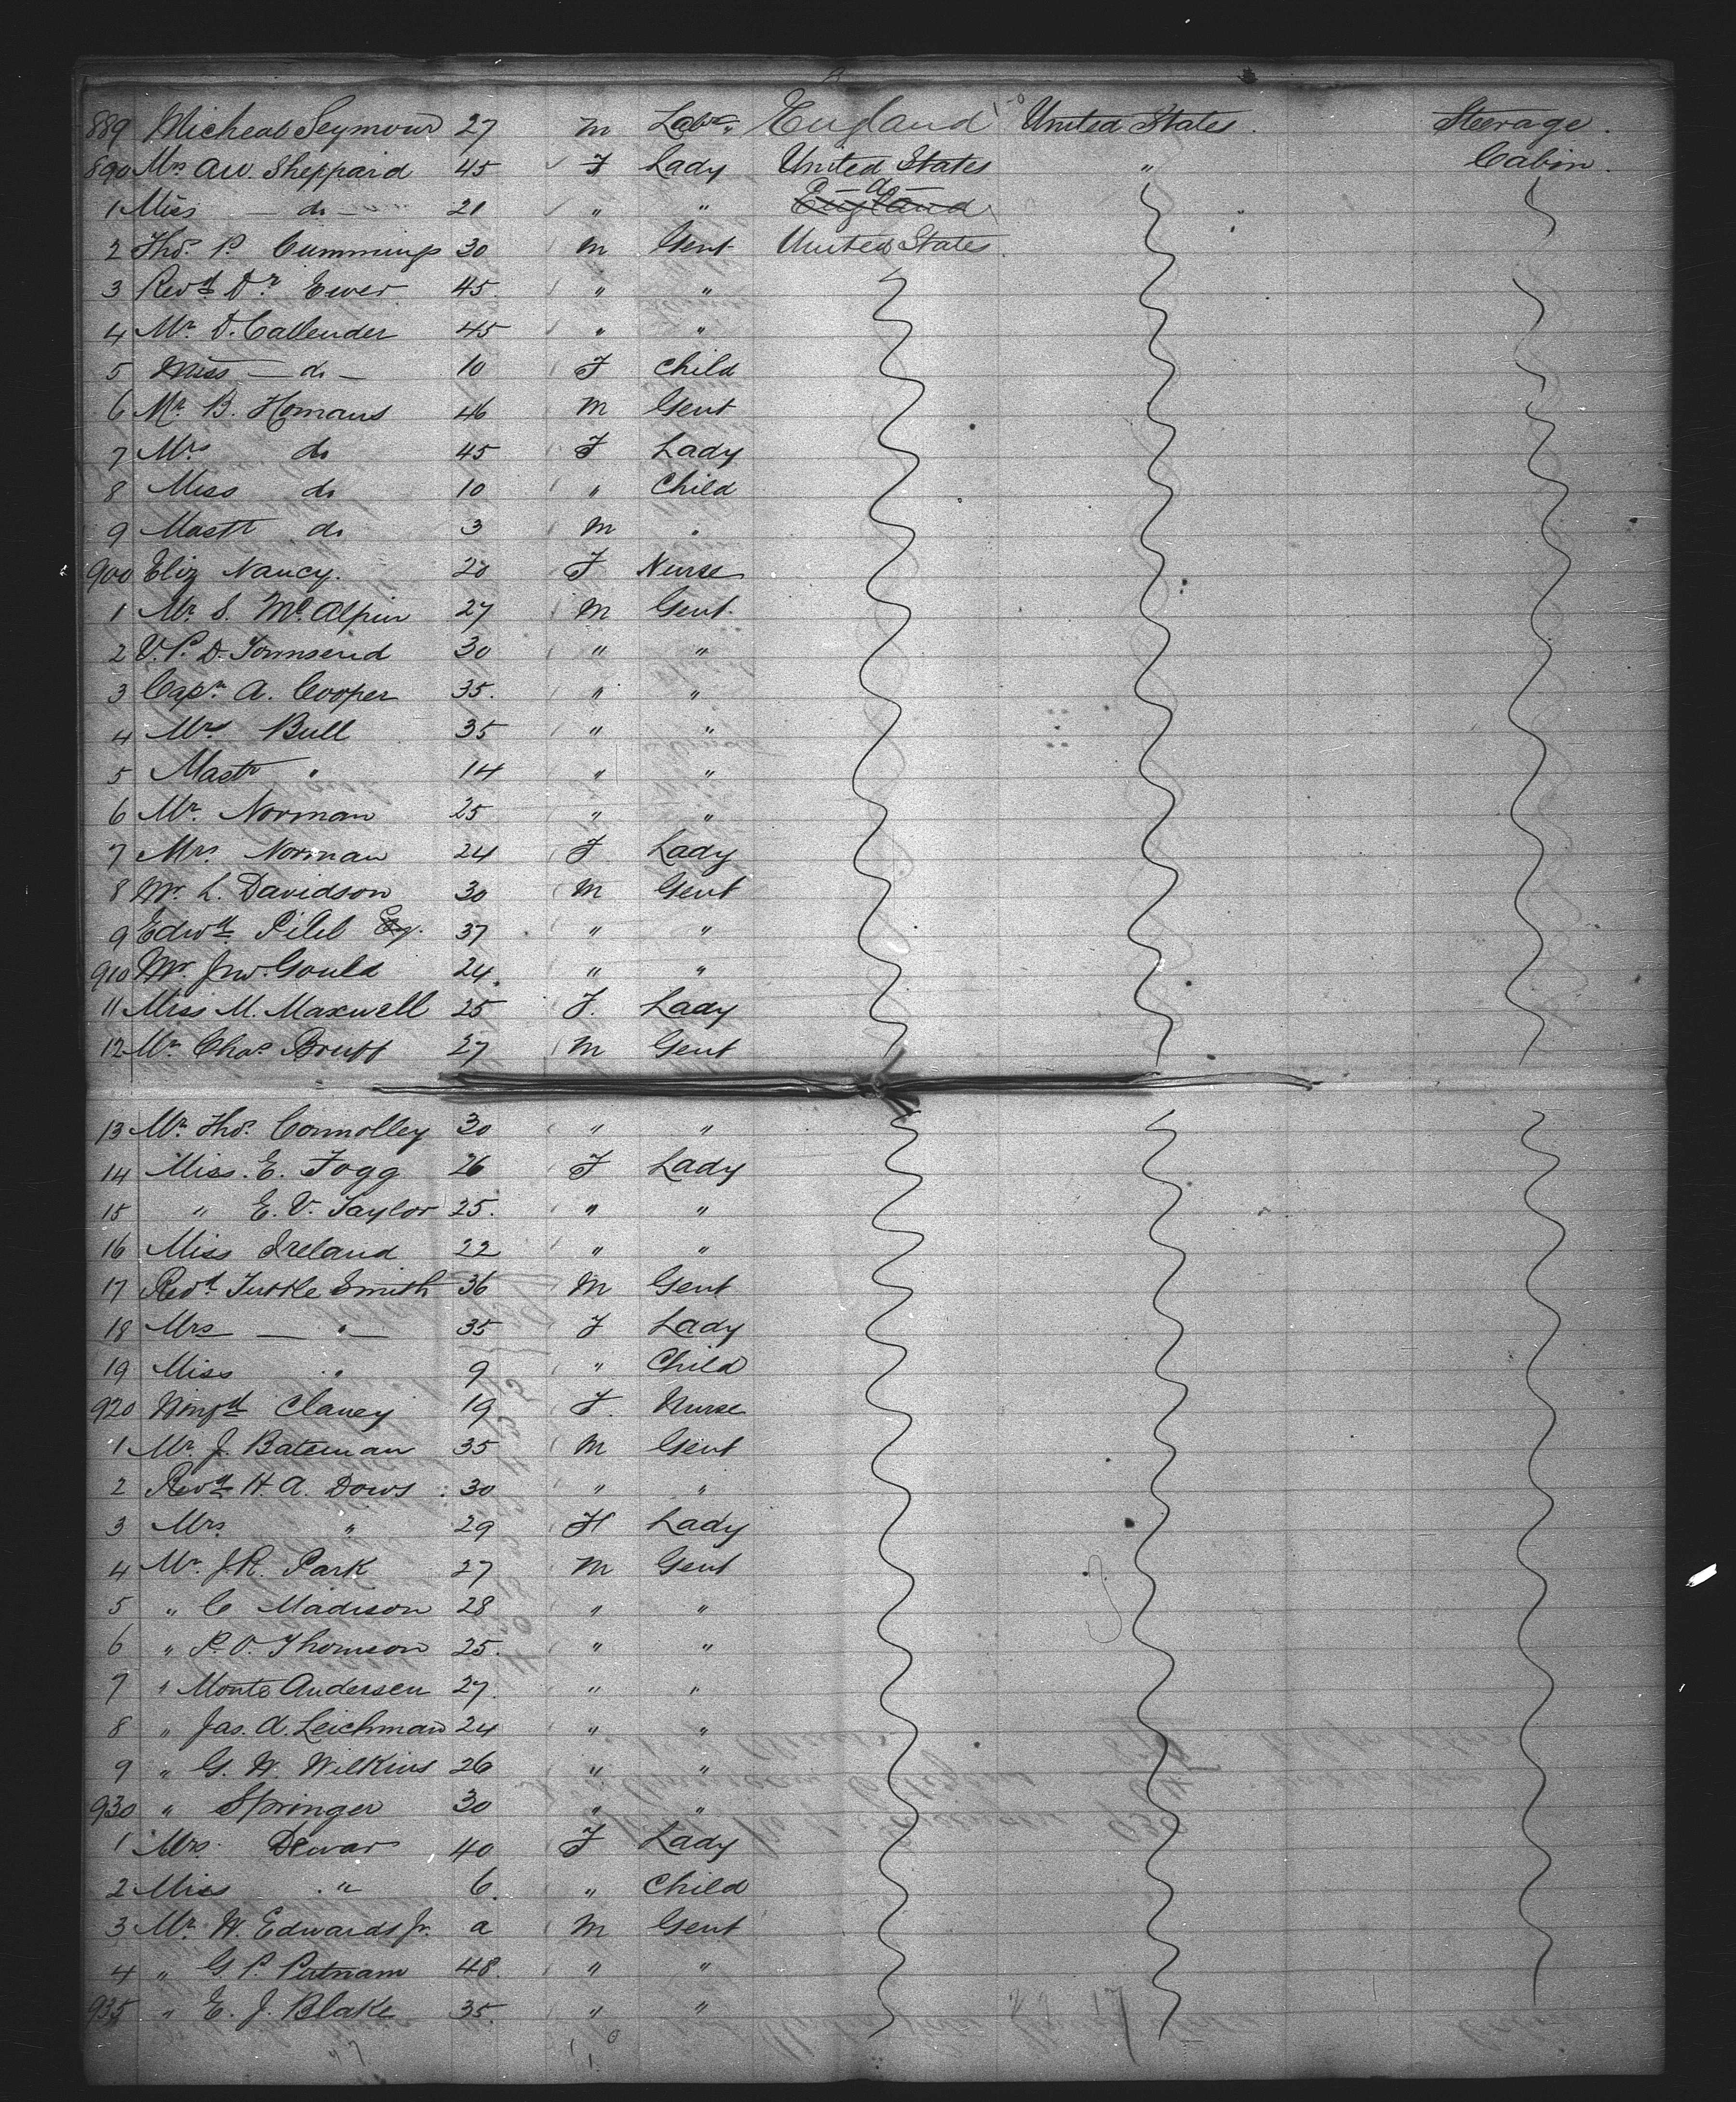 889 Micheal Seymour 27 M Labr. England United States Steerage
890 Mrs A.W. Sheppard 45 F Lady United States " Cabin
1 Miss — do — 21 " " England — do —
2 Thos. P. Cummings 30 M Gent United States
3 Revd. Dr. Ewer 45 " "
4 Mr. D. Callender 45 " "
5 Miss — do — 10 F Child
6 Mr. B. Homans 46 M Gent
7 Mrs do 45 F Lady
8 Miss do 10 " Child
9 Mastr do 3 M "
900 Eliz Nancy 20 F Nurse
1 Mr. S. McAlpin 27 M Gent
2 V. P. D. Townsend 30 " "
3 Capn. A. Cooper 35 " "
4 Mrs Bull 35 " "
5 Mastr " 14 " "
6 Mr. Norman 25 " "
7 Mrs. Norman 24 F Lady
8 Mr. L. Davidson 30 M Gent
9 Edwd. Esq. 37 " "
910 Mr. Jno. Gould 24 " "
11 Miss M. Maxwell 25 F. Lady
12 Mr. Chas 27 M Gent
13 Mr. Thos. Connolley 30 " "
14 Miss. E. Fogg 26 F Lady
15 " E. V. Taylor 25. " "
16 Miss Ireland 22 " "
17 Revd. Tuttle Smith 36 M Gent
18 Mrs — " — 35 F Lady
19 Miss " 9 " Child
920 Winfd Claney 19 F. Nurse
1 Mr. J. Bateman 35 M Gent
2 Revd. H. A. Dows 30 " "
3 Mrs. " 29 F Lady
4 Mr. J. R. Park 27 M Gent
5 " C Madison 28 " "
6 " P. O. Thomson 25. " "
7 " Monte Andersen 27. " "
8 " Jas. A. Leichman 24 " "
9 " G. W. Wilkins 26 " "
930 " Springer 30 " "
1 Mrs. Dewar 40 F Lady
2 Miss " 6. " Child
3 Mr. W. Edwards Jr. a M Gent
4 " G. P. Putnam 48. " "
935 " E. J. Blake 35. " "